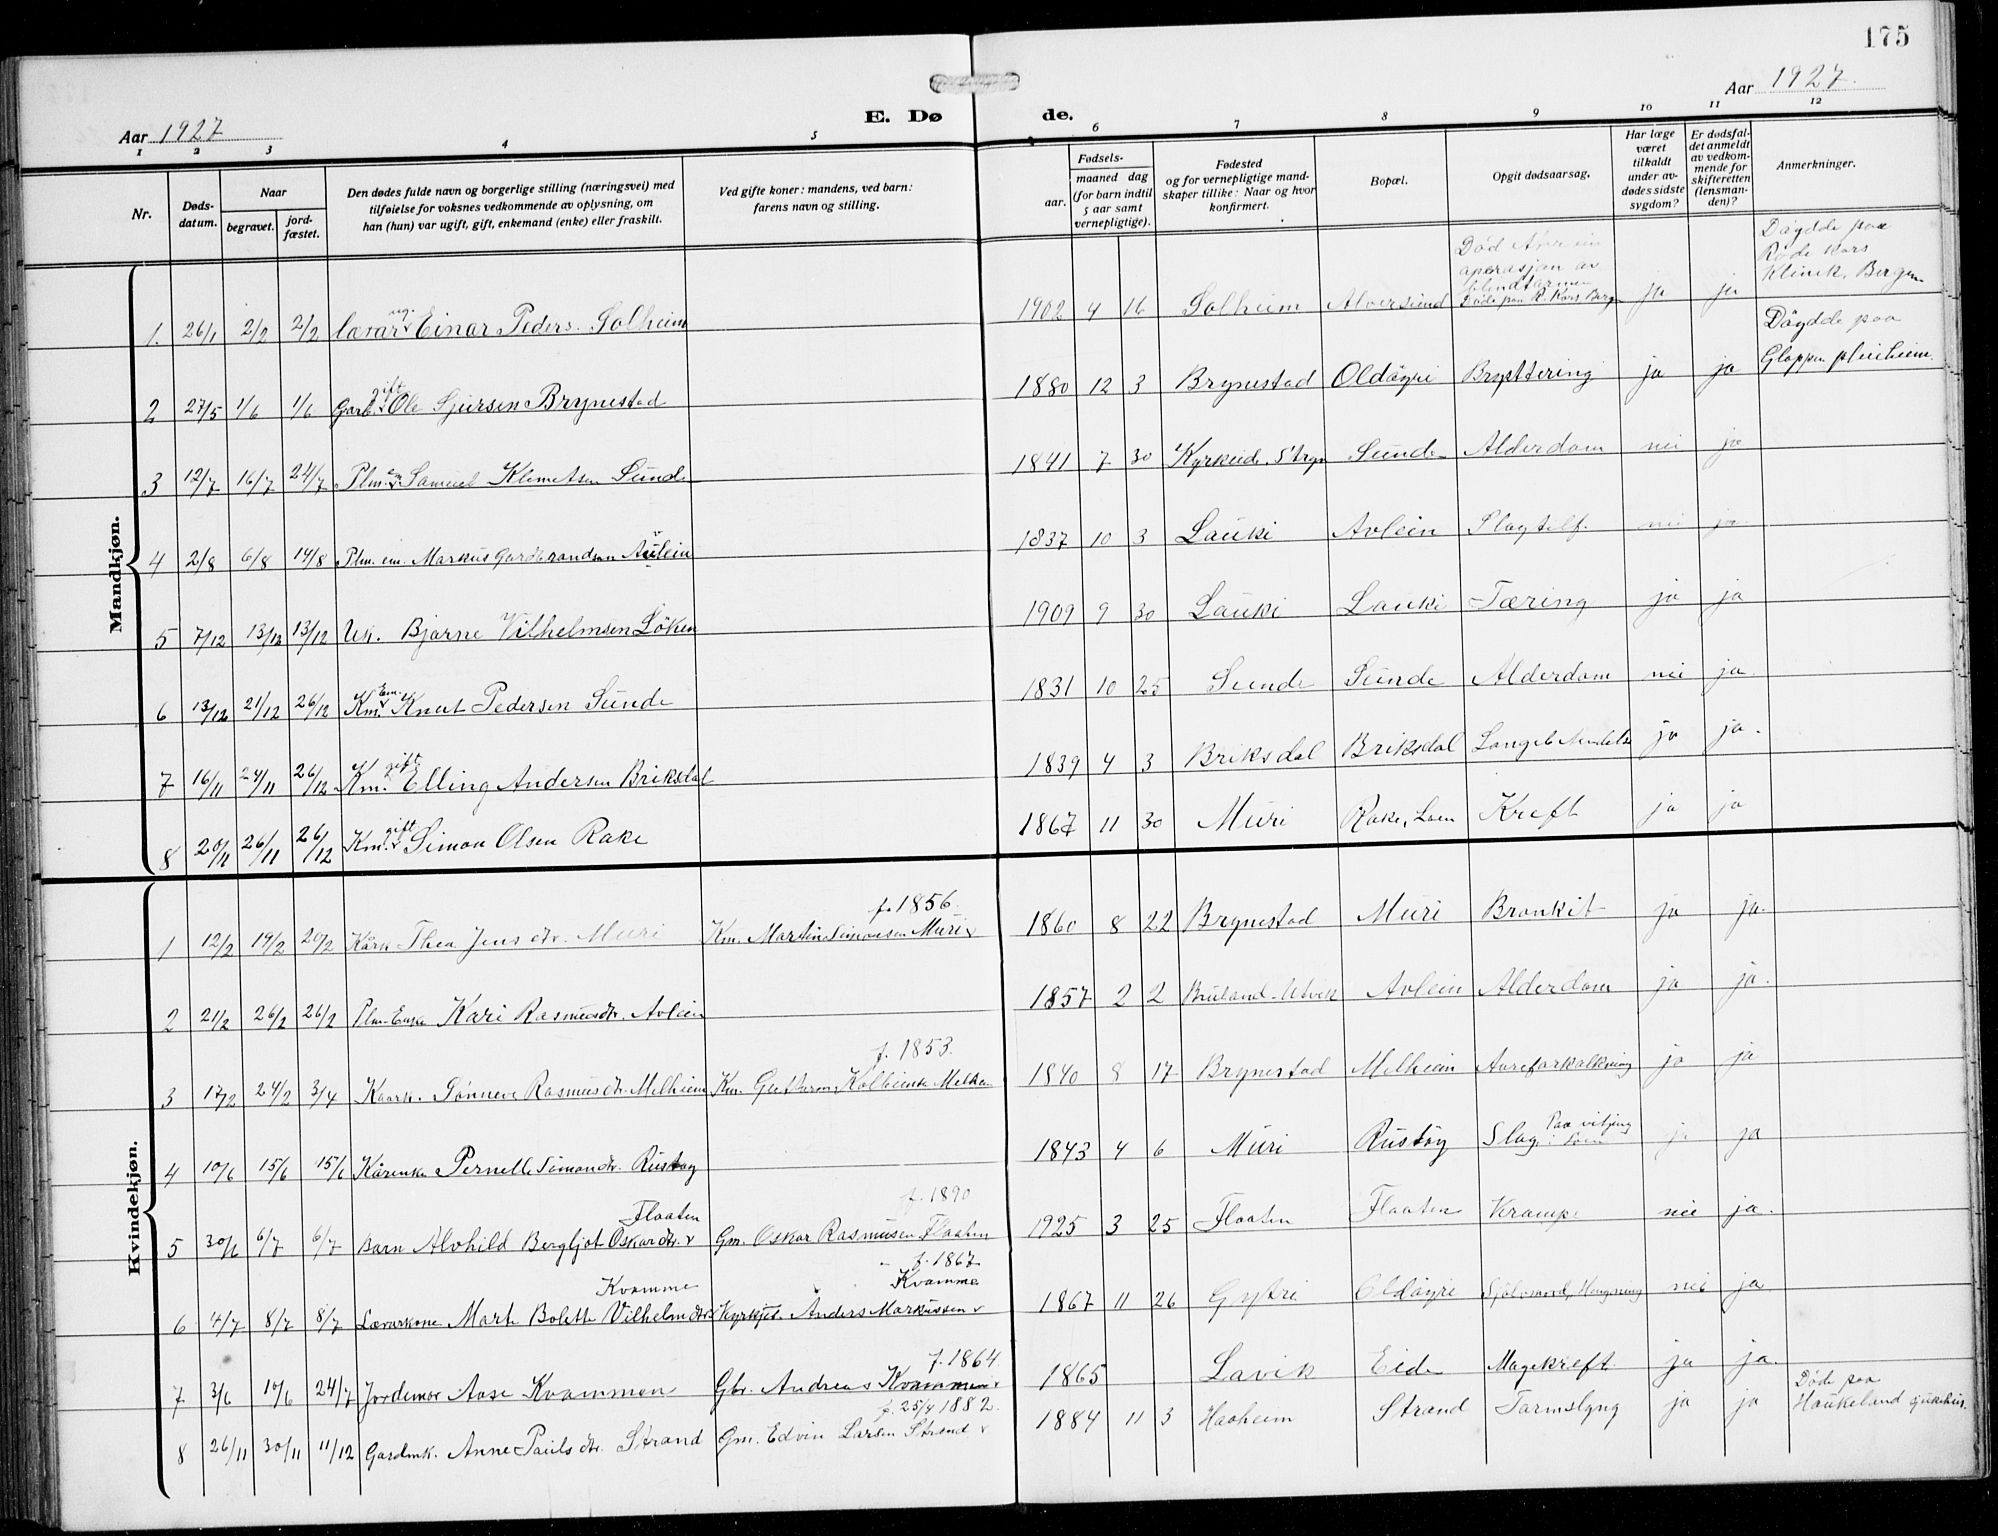 175
Aar 1927
Aar 1927.
E. Dø de.
1 2 3 4 5 6 7 8 9 10 11 12
Nr.
Døds-
datum.
Naar
begravet.
jord-
fæstet.
Den dødes fulde navn og borgerlige stilling (næringsvei) med
tilføielse for voksnes vedkommende av oplysning, om
han (hun) var ugift, gift, enkemand (enke) eller fraskilt.
Ved gifte koner: mandens, ved barn:
farens navn og stilling.
Fødsels-
aar.
maaned dag
(for barn indtil
5 aar samt
vernepligtige).
Fødested
og for vernepligtige mand-
skaper tillike: Naar og hvor
konfirmert.
Bopæl.
Opgit dødsaarsag.
Har læge
været
tilkaldt
under av-
dødes sidste
sygdom?
Er dødsfal-
det anmeldt
av vedkom-
mende for
skifteretten
(lensman-
den)?
Anmerkninger.
Mandkjøn.
1. 26/1 2/2 2/2 Lærar ug. Einar Peders. Solheim 1902 4 16 Solheim Alversund Død operasjon av blindtarmen Døde paa R. Kors Bergen ja ja Døydde paa Røde Kors Klinik, Bergen
2 27/5 1/6 1/6 Garb. gift Ole Sjursen Brynestad 1880 12 3 Brynestad Oldøyri Brysttering ja ja Døydde paa Gloppen pleieheim.
3 12/7 16/7 24/7 Plm. em Samuel Klemetsen Sunde 1841 7 30 Kyrkeide, Stryn Sunde Alderdom nei ja
4 2/8 6/8 14/8 Plm. em. Markus Gardbrandsen Aulein 1837 10 3 Lauki Avlein Slagtilf. nei ja.
5 7/12 13/12 13/12 Uk. Bjarne Vilhelmsen Løken 1909 9 30 Lauki Lauki Tæring ja ja
6 13/12 21/12 26/12 Km. Em. Knut Pedersen Sunde 1831 10 25 Sunde Sunde Alderdom nei ja.
7 16/11 24/11 26/12 Km. gift Elling Andersen Briksdal 1839 4 3 Briksdal Briksdal ja ja.
8 20/11 26/11 26/12 Km. gift Simon Olsen Rake 1867 11 30 Muri Rake, Loen Kreft ja ja
Kvindekjøn.
1 12/2 19/2 20/2 Kårk Thea Jensdtr. Muri f. 1856. Km. Martin Simonsen Muri 1860 8 22 Brynestad Muri Bronkit ja ja.
2 21/2 26/2 26/2 Plm. Enke Kari Rasmusdtr. Avlein 1857 2 2 Bruland - Utvik Avlein Alderdom ja ja.
3 17/2 24/2 3/4 Kaark. Sønneve Rasmusdtr. Melheim f. 1853. Km. Guttorm Kolbeinsen Melheim 1840 8 17 Brynestad Melheim Aareforkalkning ja ja
4 10/6 15/6 15/6 Kårenke Pernelle Simondtr. Rustøy 1843 4 6 Muri Rustøy Slag. Paa vitjing i Loen ja ja
5 30/6 6/7 6/7 Barn Alvhild Bergljot Oskardtr. Flaaten f. 1890 Gm. Oskar Rasmusen Flaaten 1925 3 25 Flaaten Flaaten Krampe nei ja.
6 4/7 8/7 8/7 Lærarkone Marte Bolette Vilhelmdtr Kvamme f. 1867 Kyrkjet. Anders Markussen Kvamme 1867 11 26 Gytri Oldøyri Sjølvmord, Hengning nei ja
7 3/6 10/6 24/7 Jordemor Aase Kvammen f. 1864. Gbr. Andreas Kvammen 1865 Lavik Eide Magekreft. ja ja.
8 26/11 30/11 11/12 Gardmk. Anne Paulsdtr. Strand f. 25/4 1882. Gm. Edvin Larsen Strand 1884 11 3 Haaheim Strand Tarmslyng ja ja Døde paa Haukeland sjukehus.